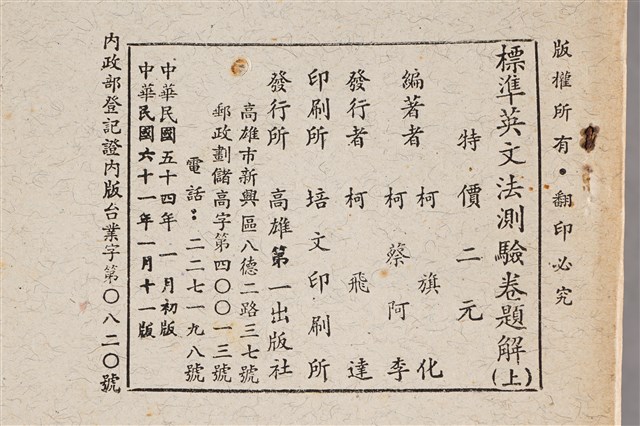 版權所有•翻印必究
標準英文法測驗卷題解(上)
特價二元
編著者 柯旗化
柯蔡阿李
發行者 柯飛達
印刷所 培文印刷所
發行所 高雄第一出版社
高雄市新興區八德二路三七號
郵政劃儲高字第四〇〇一三號
電話:二二七一九八號
中華民國五十四年一月初版
中華民國六十一年一月十一版
內政部登記證內版台業字第〇八二〇號